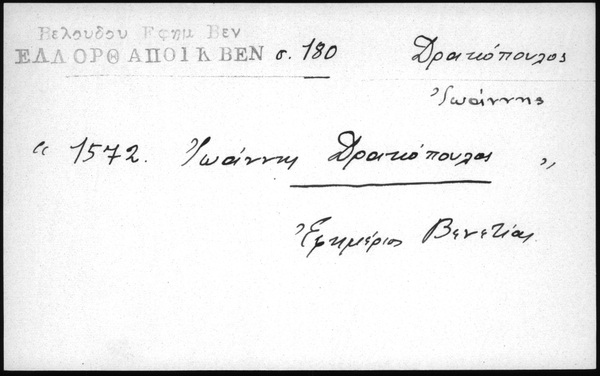 Βελουδου Εφημ Βεν
ΕΛΛ ΟΡΘ ΑΠΟΙΚ ΒΕΝ σ. 180
Δρακόπουλος
Ἰωάννης
“ 1572. Ἰωάννης Δρακόπουλος „
Ἐφημέριος Βενετίας